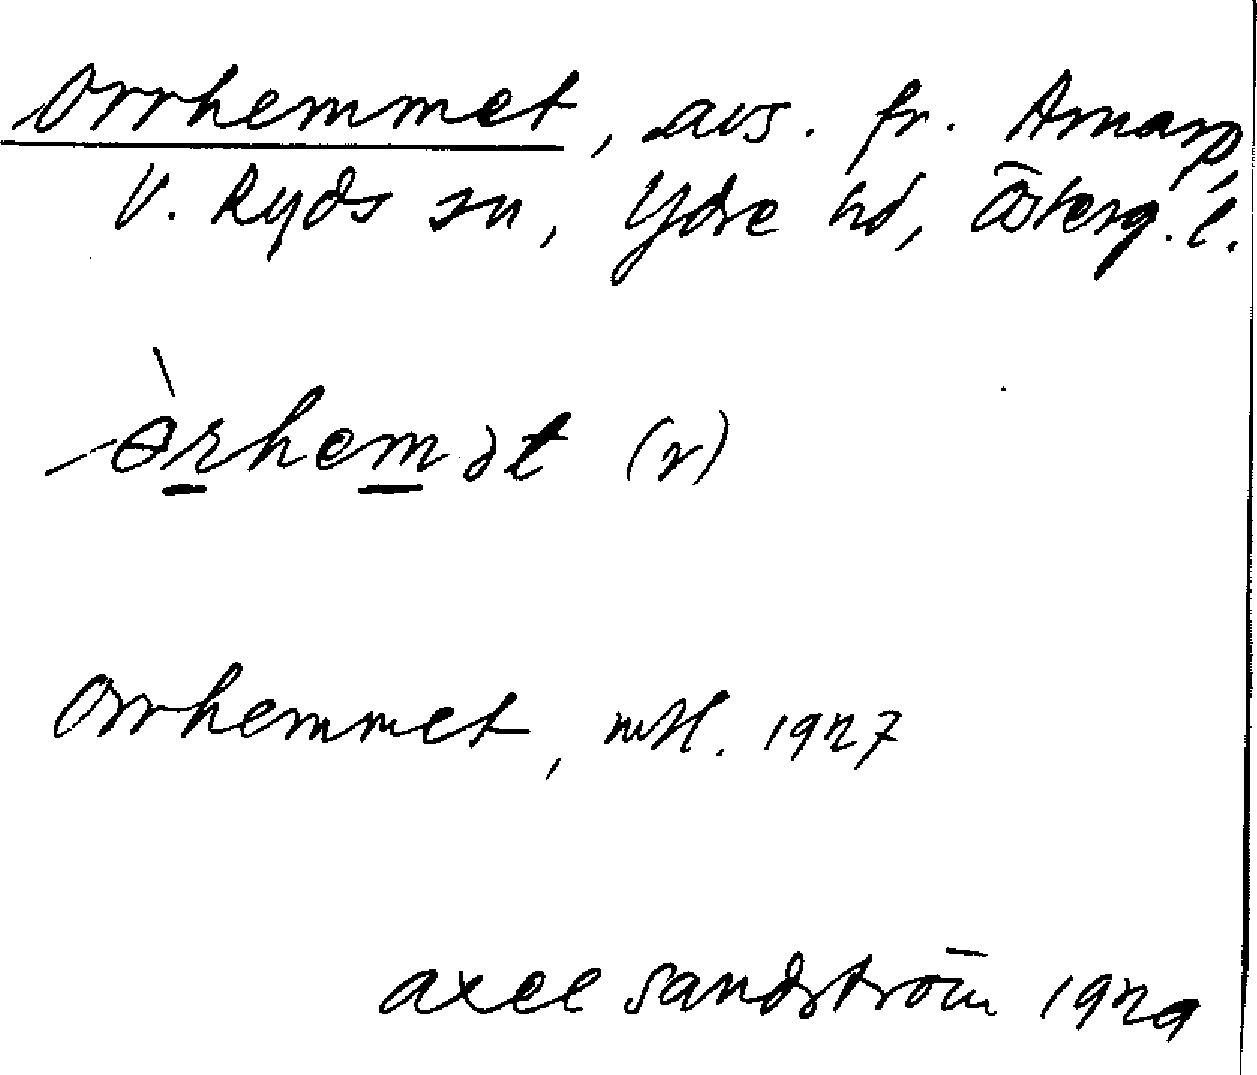 Orrhemmet, avs. fr. Arnarp,
V. Ryds sn, Ydre hd, Österg. l.
ɵ̀rhemət (r)
Orrhemmet, mtl. 1927
Axel Sandström 1929